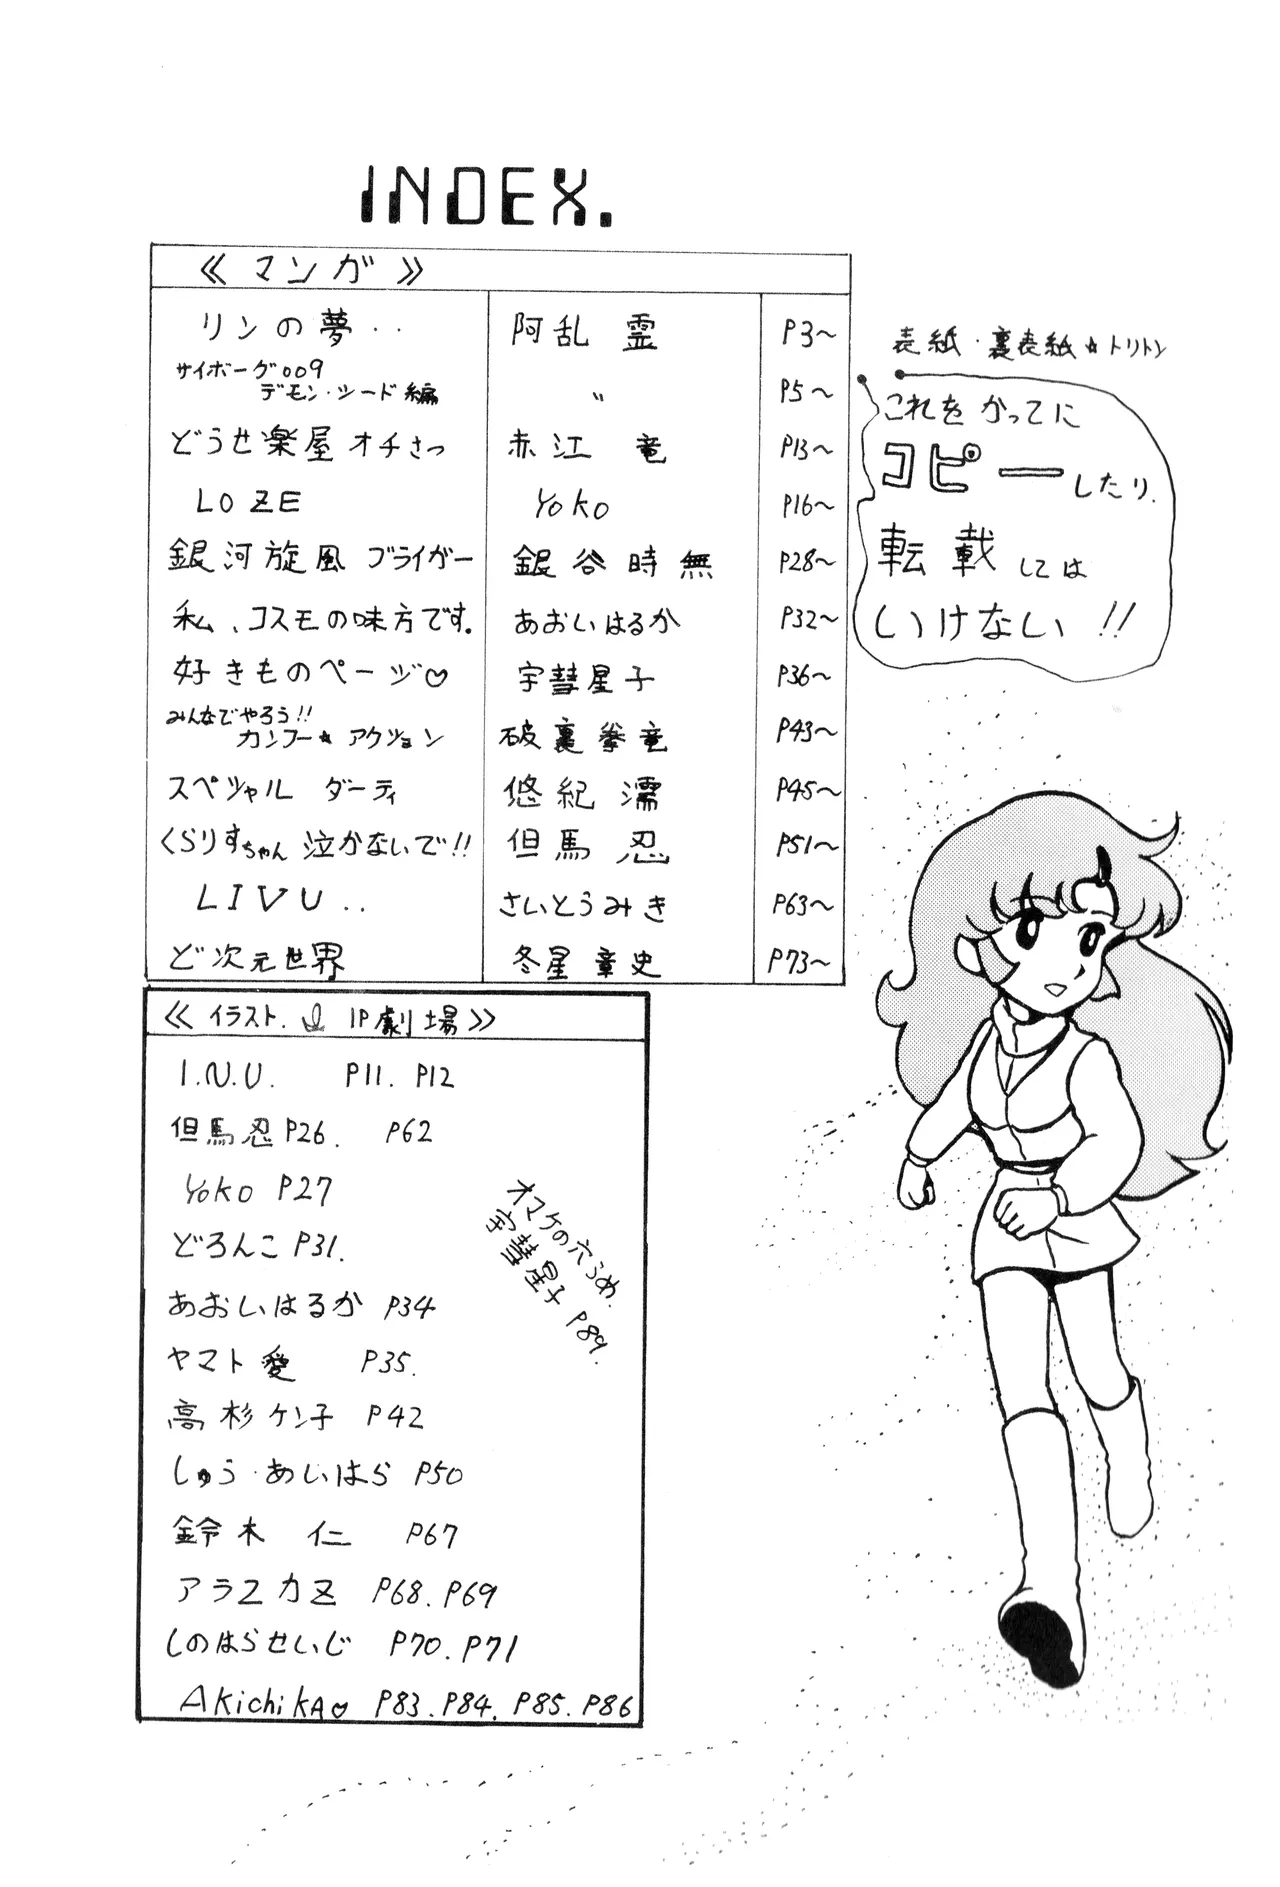 INDEX.
≪マンガ≫
リンの夢‥ 阿乱 霊 P3～
サイボーグ009
デモン・シード編 〃 P5～
どうせ楽屋オチさっ 赤江 竜 P13～
LOZE YOKO P16～
銀河旋風ブライガー 銀谷時無 P28～
私、コスモの味方です。 あおいはるか P32～
好きものページ♡ 宇彗星子 P36～
みんなでやろう!!
カンフー☆アクション 破裏拳竜 P43～
スペシャル ダーティ 悠紀 濡 P45～
くらりすちゃん 泣かないで!! 但馬 忍 P51～
LIVU‥ さいとうみき P63～
ど次元世界 冬星 章史 P73～
表紙・裏表紙☆トリトン
これをかってに
コピーしたり、
転載しては
いけない!!
≪イラスト. 1P劇場≫
I.N.U. P11. P12
但馬忍 P26. P62
YOKO P27
どろんこ P31.
あおいはるか P34
ヤマト愛 P35.
高杉ケン子 P42
しゅう・あいはら P50
鈴木 仁 P67
アラエカズ P68. P69
しのはらせいじ P70. P71
AKichiKA♡ P83. P84. P85. P86
オマケの穴うめ.
宇彗星子 P89.